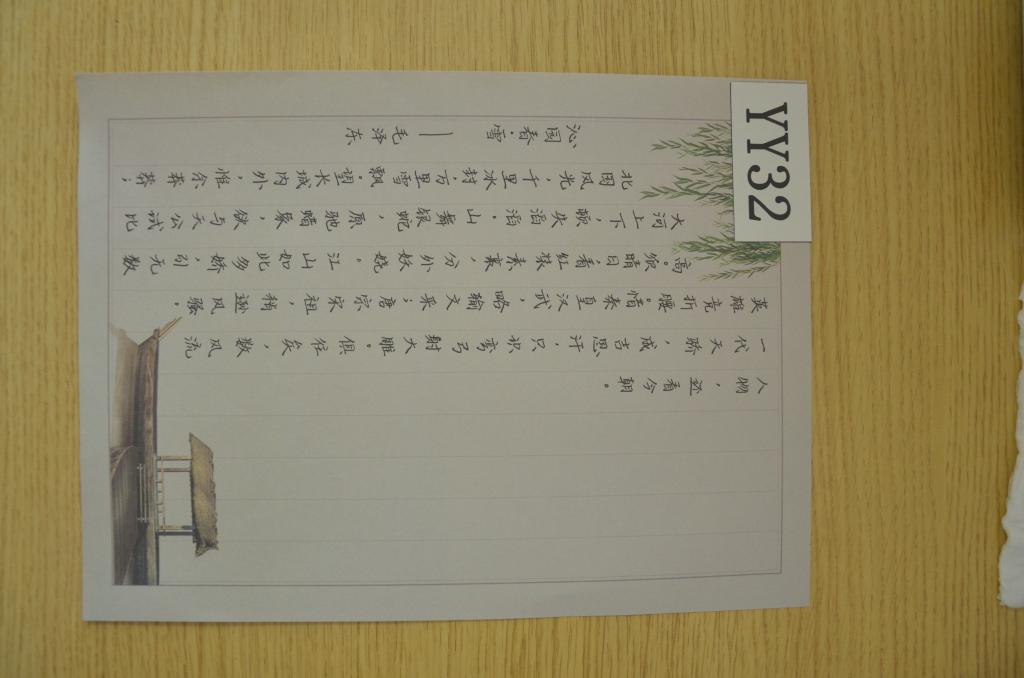 YY32
沁园春·雪 — 毛泽东
北国风光，千里冰封，万里雪飘。望长城内外，惟余莽莽；
大河上下，顿失滔滔。山舞银蛇，原驰蜡象，欲与天公试比
高。须晴日，看红装素裹，分外妖娆。江山如此多娇，引无数
英雄竞折腰。惜秦皇汉武，略输文采；唐宗宋祖，稍逊风骚。
一代天骄，成吉思汗，只识弯弓射大雕。俱往矣，数风流
人物，还看今朝。